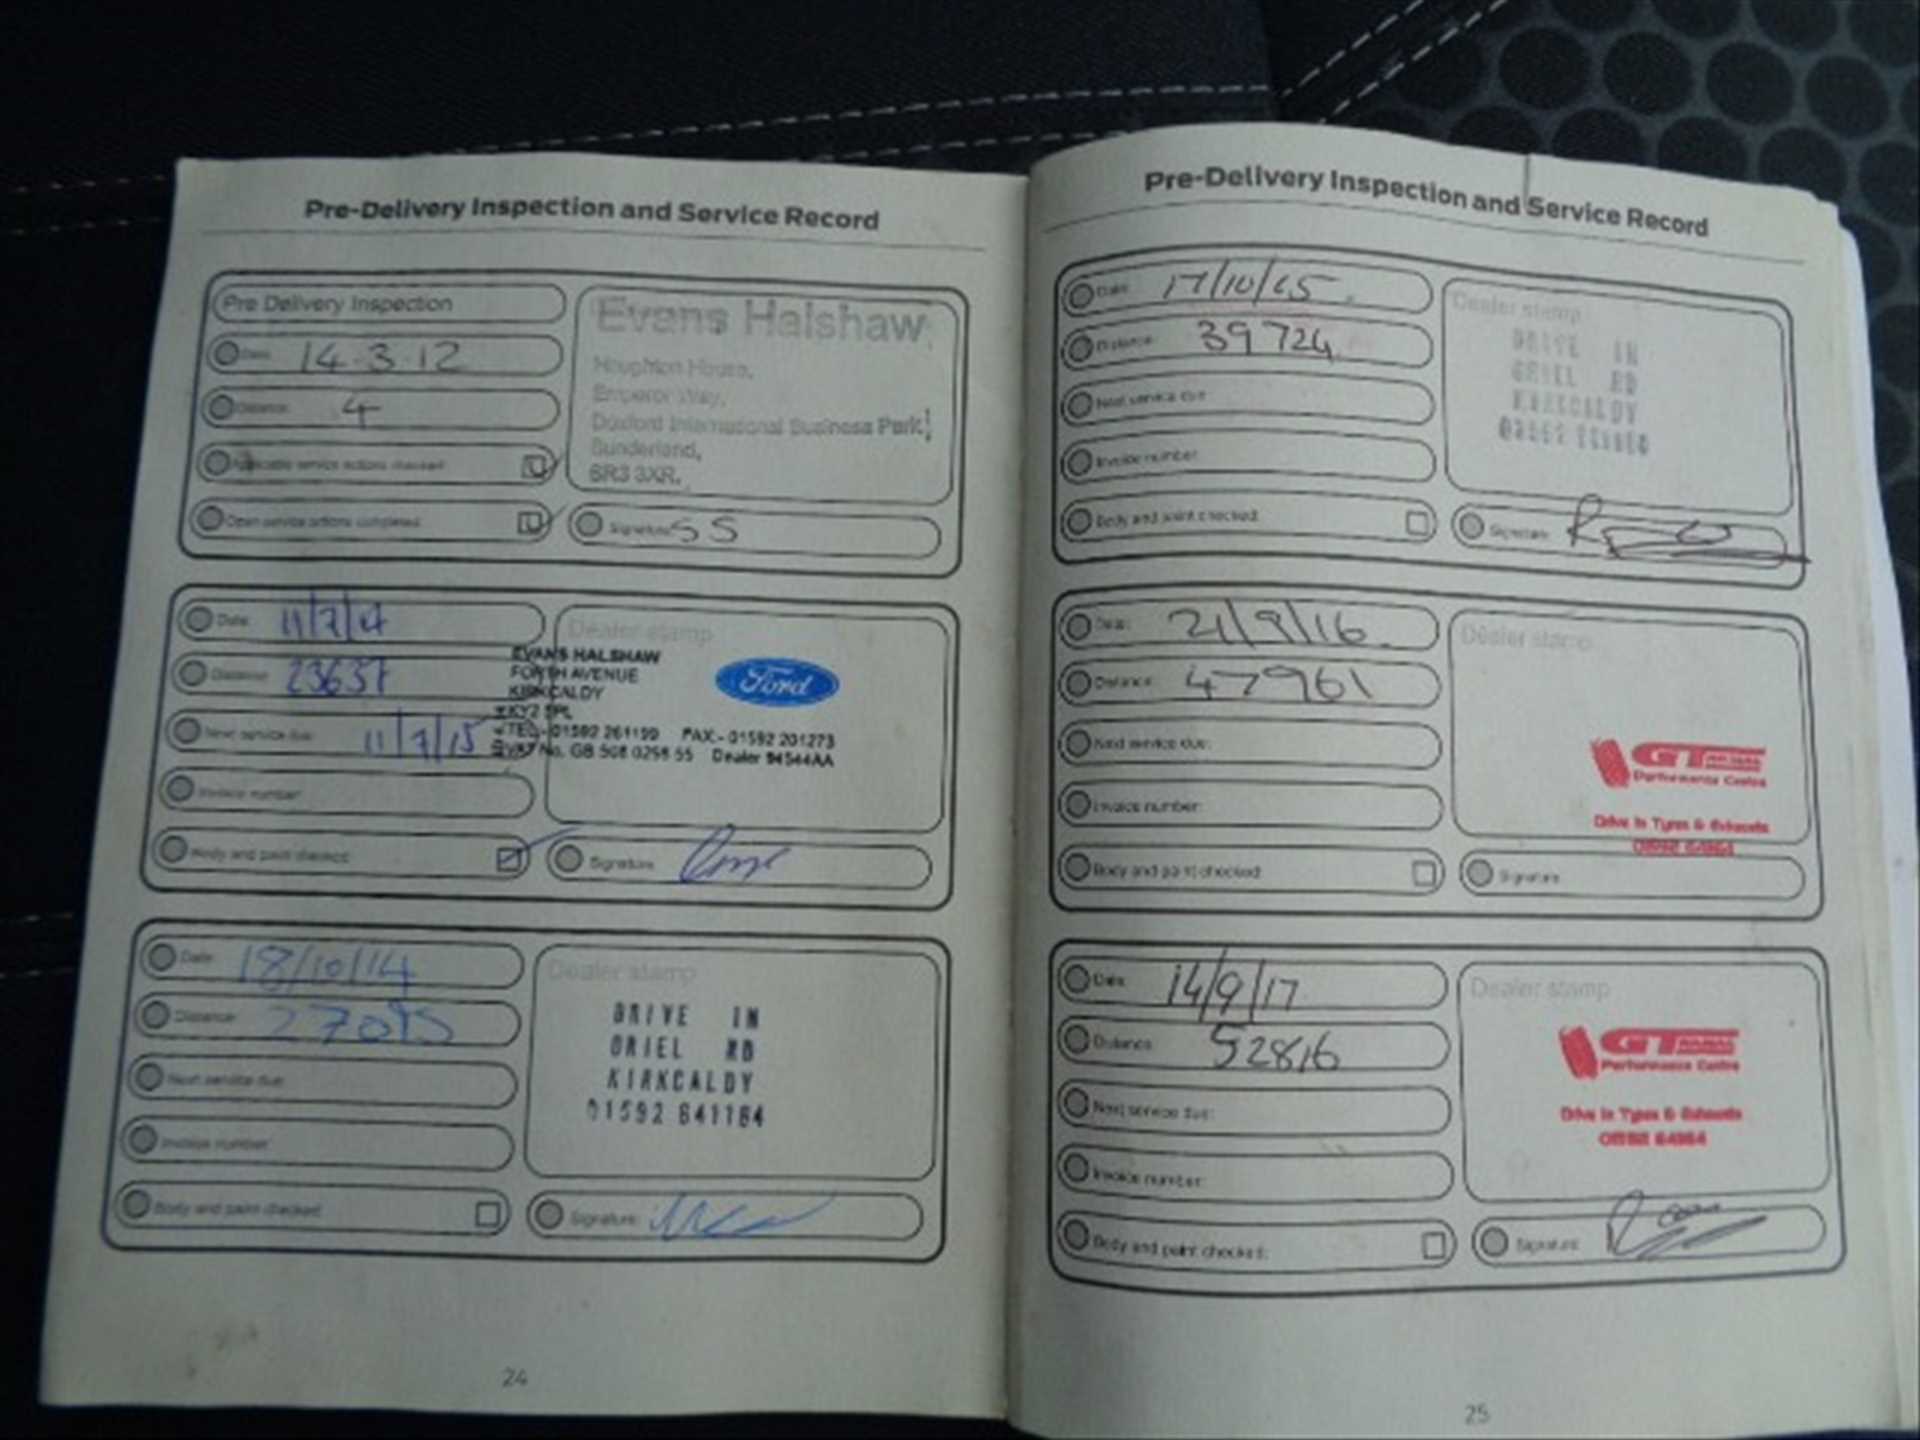 Pre-Delivery Inspection and Service Record
Pre Delivery Inspection
Date: 14-3-12
Distance: 4
Applicable service actions checked:
Open service actions completed:
Evans Halshaw
Houghton House,
Emperor Way,
Doxford International Business Park,
Sunderland,
SR3 3XR.
Signature: SS
Date: 11/7/14
Distance: 23637
Next service due: 11/7/15
Invoice number:
Body and paint checked:
Dealer stamp
EVANS HALSHAW
FORTH AVENUE
KIRKCALDY
KY2 5PL
TEL:- 01592 261199 FAX:- 01592 201273
VAT No. GB 508 0258 55 Dealer 94544AA
Ford
Signature:
Date: 18/10/14
Distance: 27095
Next service due:
Invoice number:
Body and paint checked:
Dealer stamp
DRIVE IN
ORIEL RD
KIRKCALDY
01592 641164
Signature:
24
Pre-Delivery Inspection and Service Record
Date: 17/10/15
Distance: 39724
Next service due:
Invoice number:
Body and paint checked:
Dealer stamp
DRIVE IN
ORIEL RD
KIRKCALDY
Signature:
Date: 21/9/16
Distance: 47961
Next service due:
Invoice number:
Body and paint checked:
Dealer stamp
GT
Performance Centre
Drive In Tyres & Exhausts
Signature:
Date: 14/9/17
Distance: 52816
Next service due:
Invoice number:
Body and paint checked:
Dealer stamp
GT
Performance Centre
Drive In Tyres & Exhausts
Signature:
25